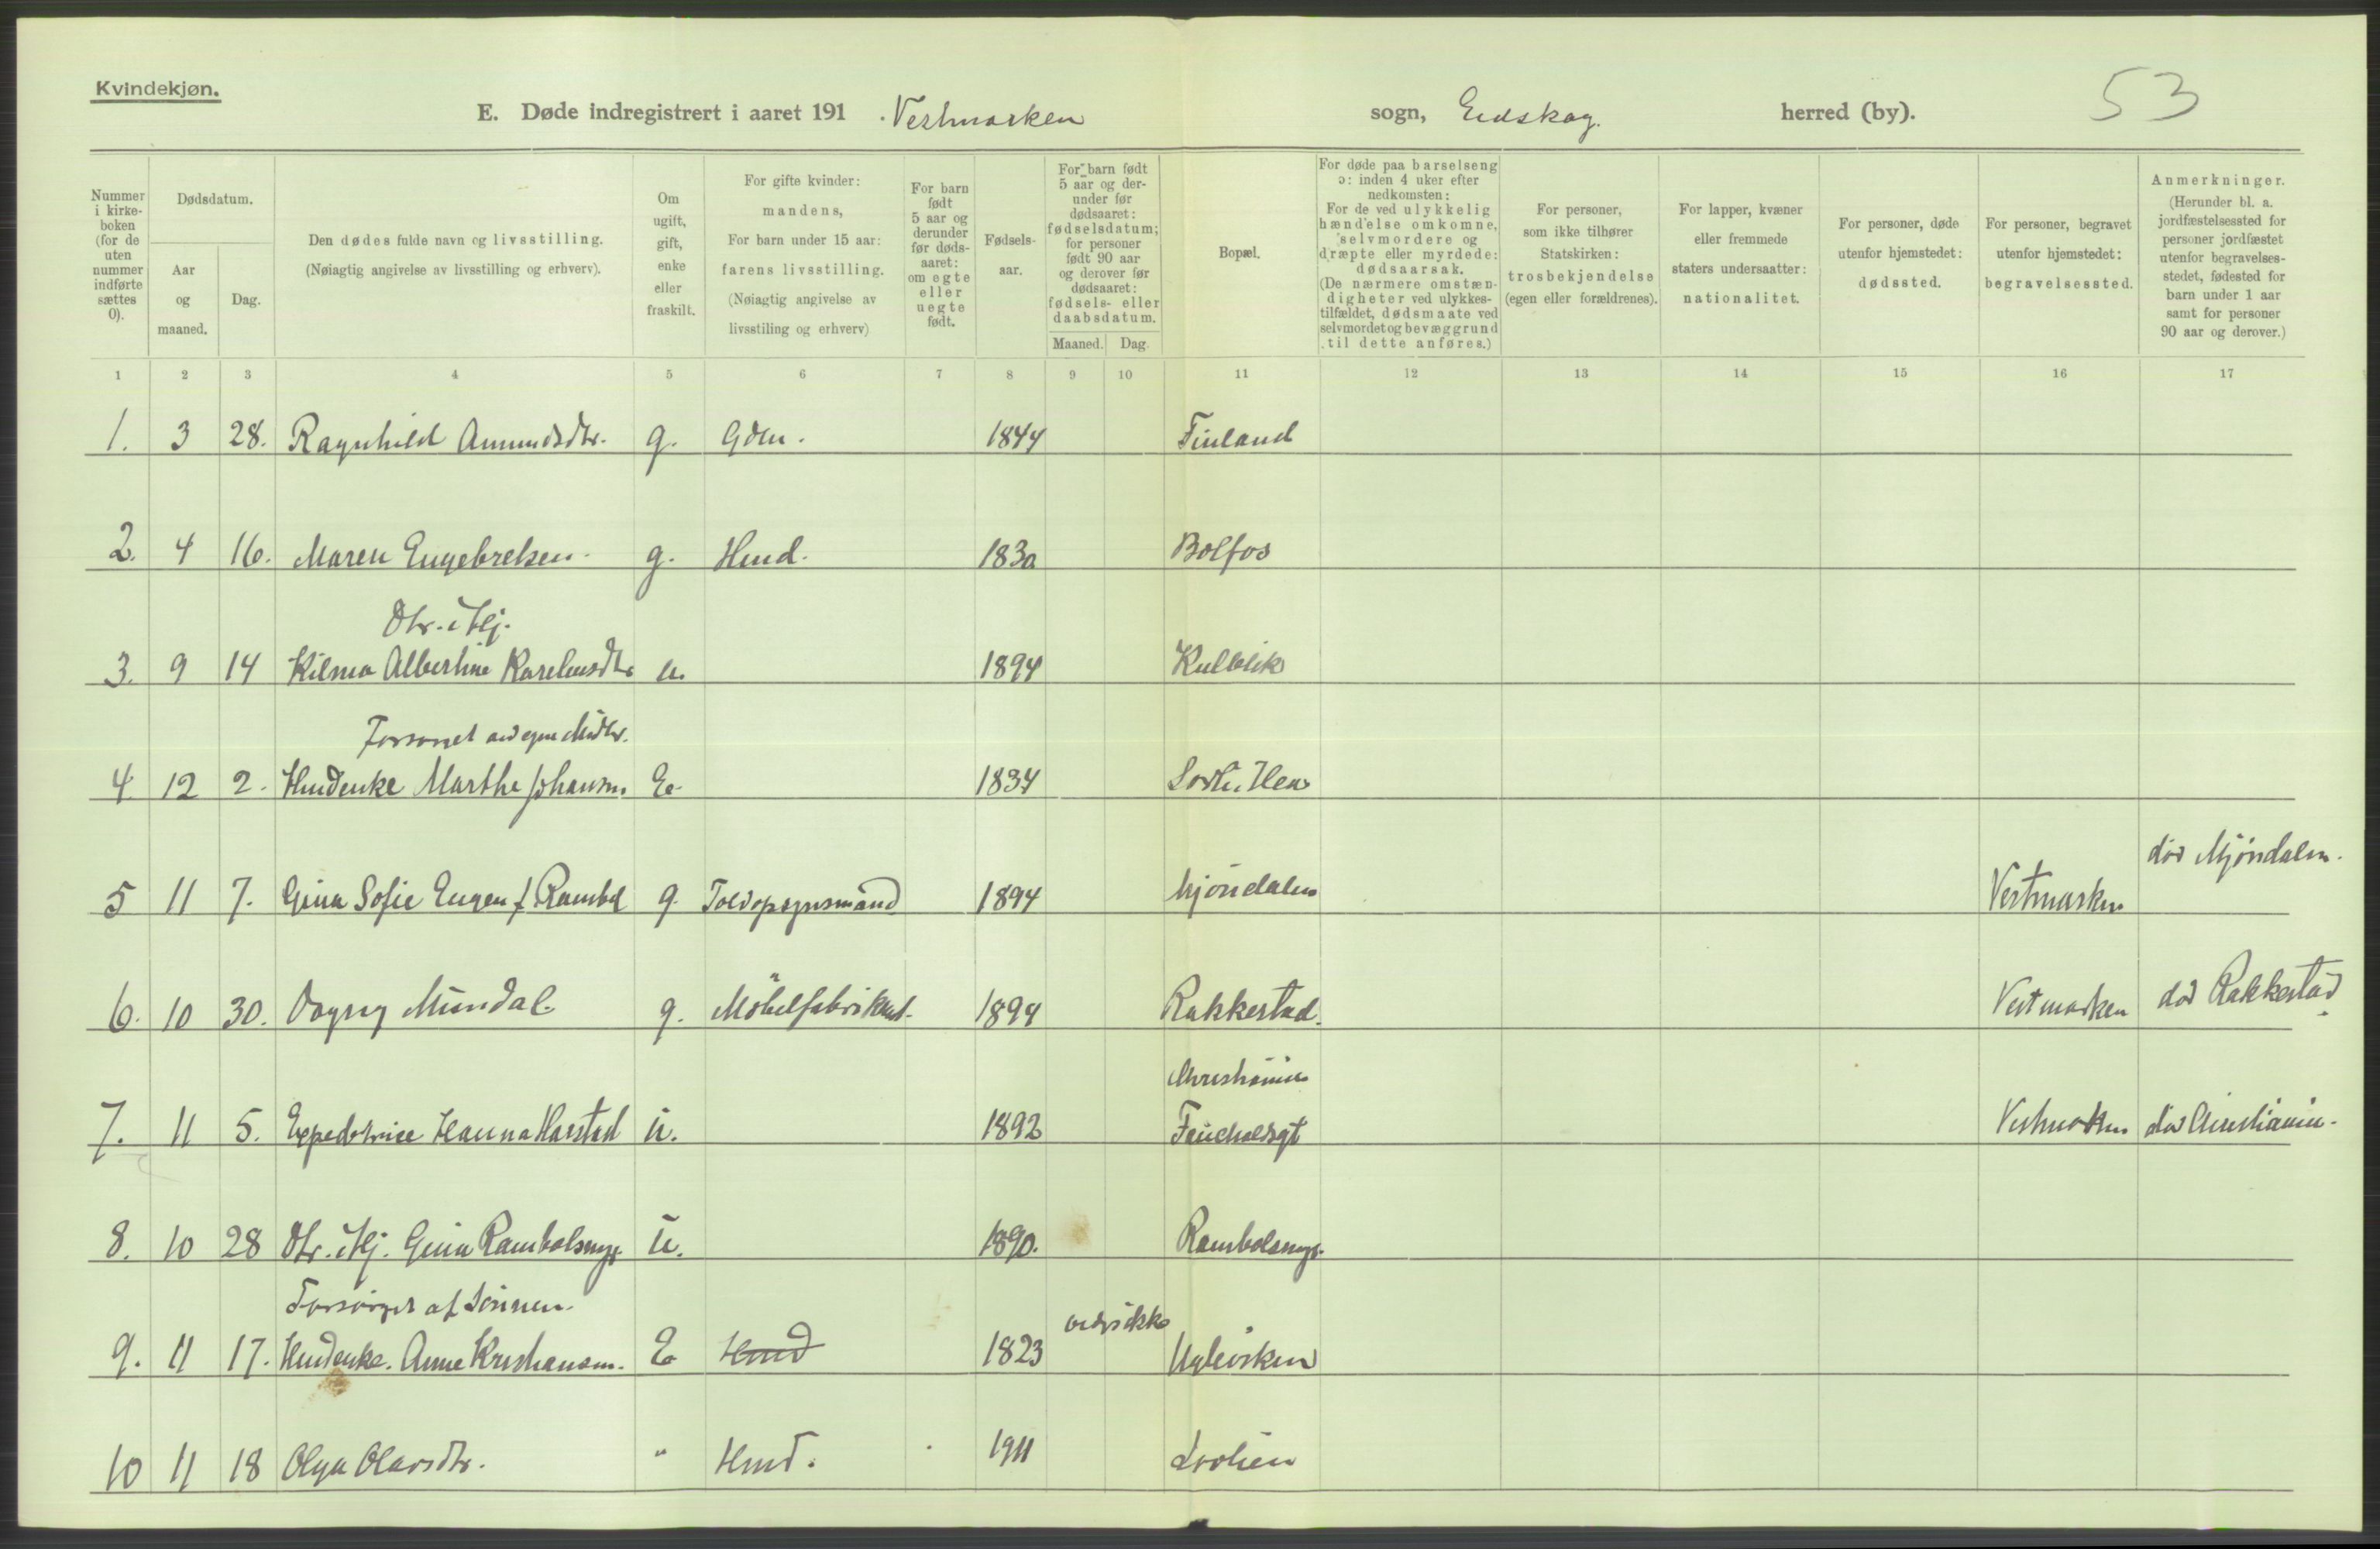 Kvindekjøn.
E. Døde indregistrert i aaret 191 . Vestmarken sogn, Eidskog. herred (by). 53
Nummer i kirke-boken (for de uten nummer indførte sættes 0).
Dødsdatum.
Aar og maaned.
Dag.
Den dødes fulde navn og livsstilling.
(Nøiagtig angivelse av livsstilling og erhverv).
Om ugift, gift, enke eller fraskilt.
For gifte kvinder: mandens, For barn under 15 aar: farens livsstilling. (Nøiagtig angivelse av livsstiling og erhverv)
For barn født 5 aar og derunder før døds-aaret: om egte eller uegte født.
Fødsels-aar.
For barn født 5 aar og der-under før dødsaaret: fødselsdatum; for personer født 90 aar og derover før dødsaaret: fødsels- eller daabsdatum.
Maaned. Dag.
Bopæl.
For døde paa barselseng ɔ: inden 4 uker efter nedkomsten: For de ved ulykkelig hændelse omkomne, selvmordere og dræpte eller myrdede: dødsaarsak. (De nærmere omstæn-digheter ved ulykkes-tilfældet, dødsmaate ved selvmordet og bevæggrund til dette anføres.)
For personer, som ikke tilhører Statskirken: trosbekjendelse (egen eller forældrenes).
For lapper, kvæner eller fremmede staters undersaatter: nationalitet.
For personer, døde utenfor hjemstedet: dødssted.
For personer, begravet utenfor hjemstedet: begravelsessted.
Anmerkninger. (Herunder bl. a. jordfæstelsessted for personer jordfæstet utenfor begravelses-stedet, fødested for barn under 1 aar samt for personer 90 aar og derover.)
1 2 3 4 5 6 7 8 9 10 11 12 13 14 15 16 17
1. 3 28. Ragnhild Amundsdtr. g. Gdm. 1844 Finland
2. 4 16. Maren Engebretsen. g. Hmd. 1830 Bolfos
Dtr. i Hj.
3. 9 14 Hilma Albertine Kareliusdtr u. 1894 Kulblik
Forsørget av egne Midler.
4. 12 2. Hmdenke Marthe Johansen. E. 1834
5 11 7. Gina Sofie Engen f. Rambøl g. Toldopsynsmand 1894 Mjöndalen Vestmarken död Mjöndalen.
6. 10 30. Dagny Mundal g. Möbelfabrikant. 1894 Rakkestad. Vestmarken död Rakkestad.
Christiania
7. 11 5. Expeditrice Hanna Harstad u. 1892 Vestmarken död Christiania.
8. 10 28 Dtr. i Hj. Gina Rambölsnyg. u. 1890. Rambölsnyg.
Forsörget af Sönnen.
9. 11 17. Hmdenke. Anne Kristiansen. E Hmd 1823 vides ikke
10 11 18 Olga Olavsdtr. " Hmd. . 1911